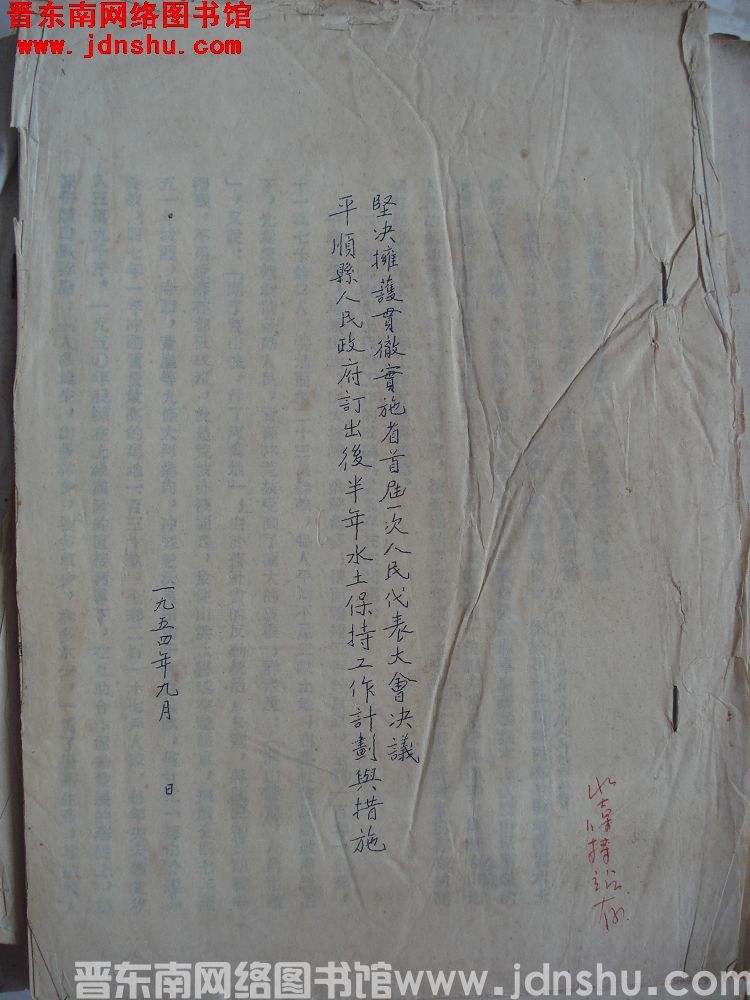 晋东南网络图书馆
www.jdnshu.com
堅决擁護貫徹實施省首屆一次人民代表大會决議
平順縣人民政府訂出後半年水土保持工作計劃與措施
一九五四年九月 日
水土保持
晋东南网络图书馆www.jdnshu.com